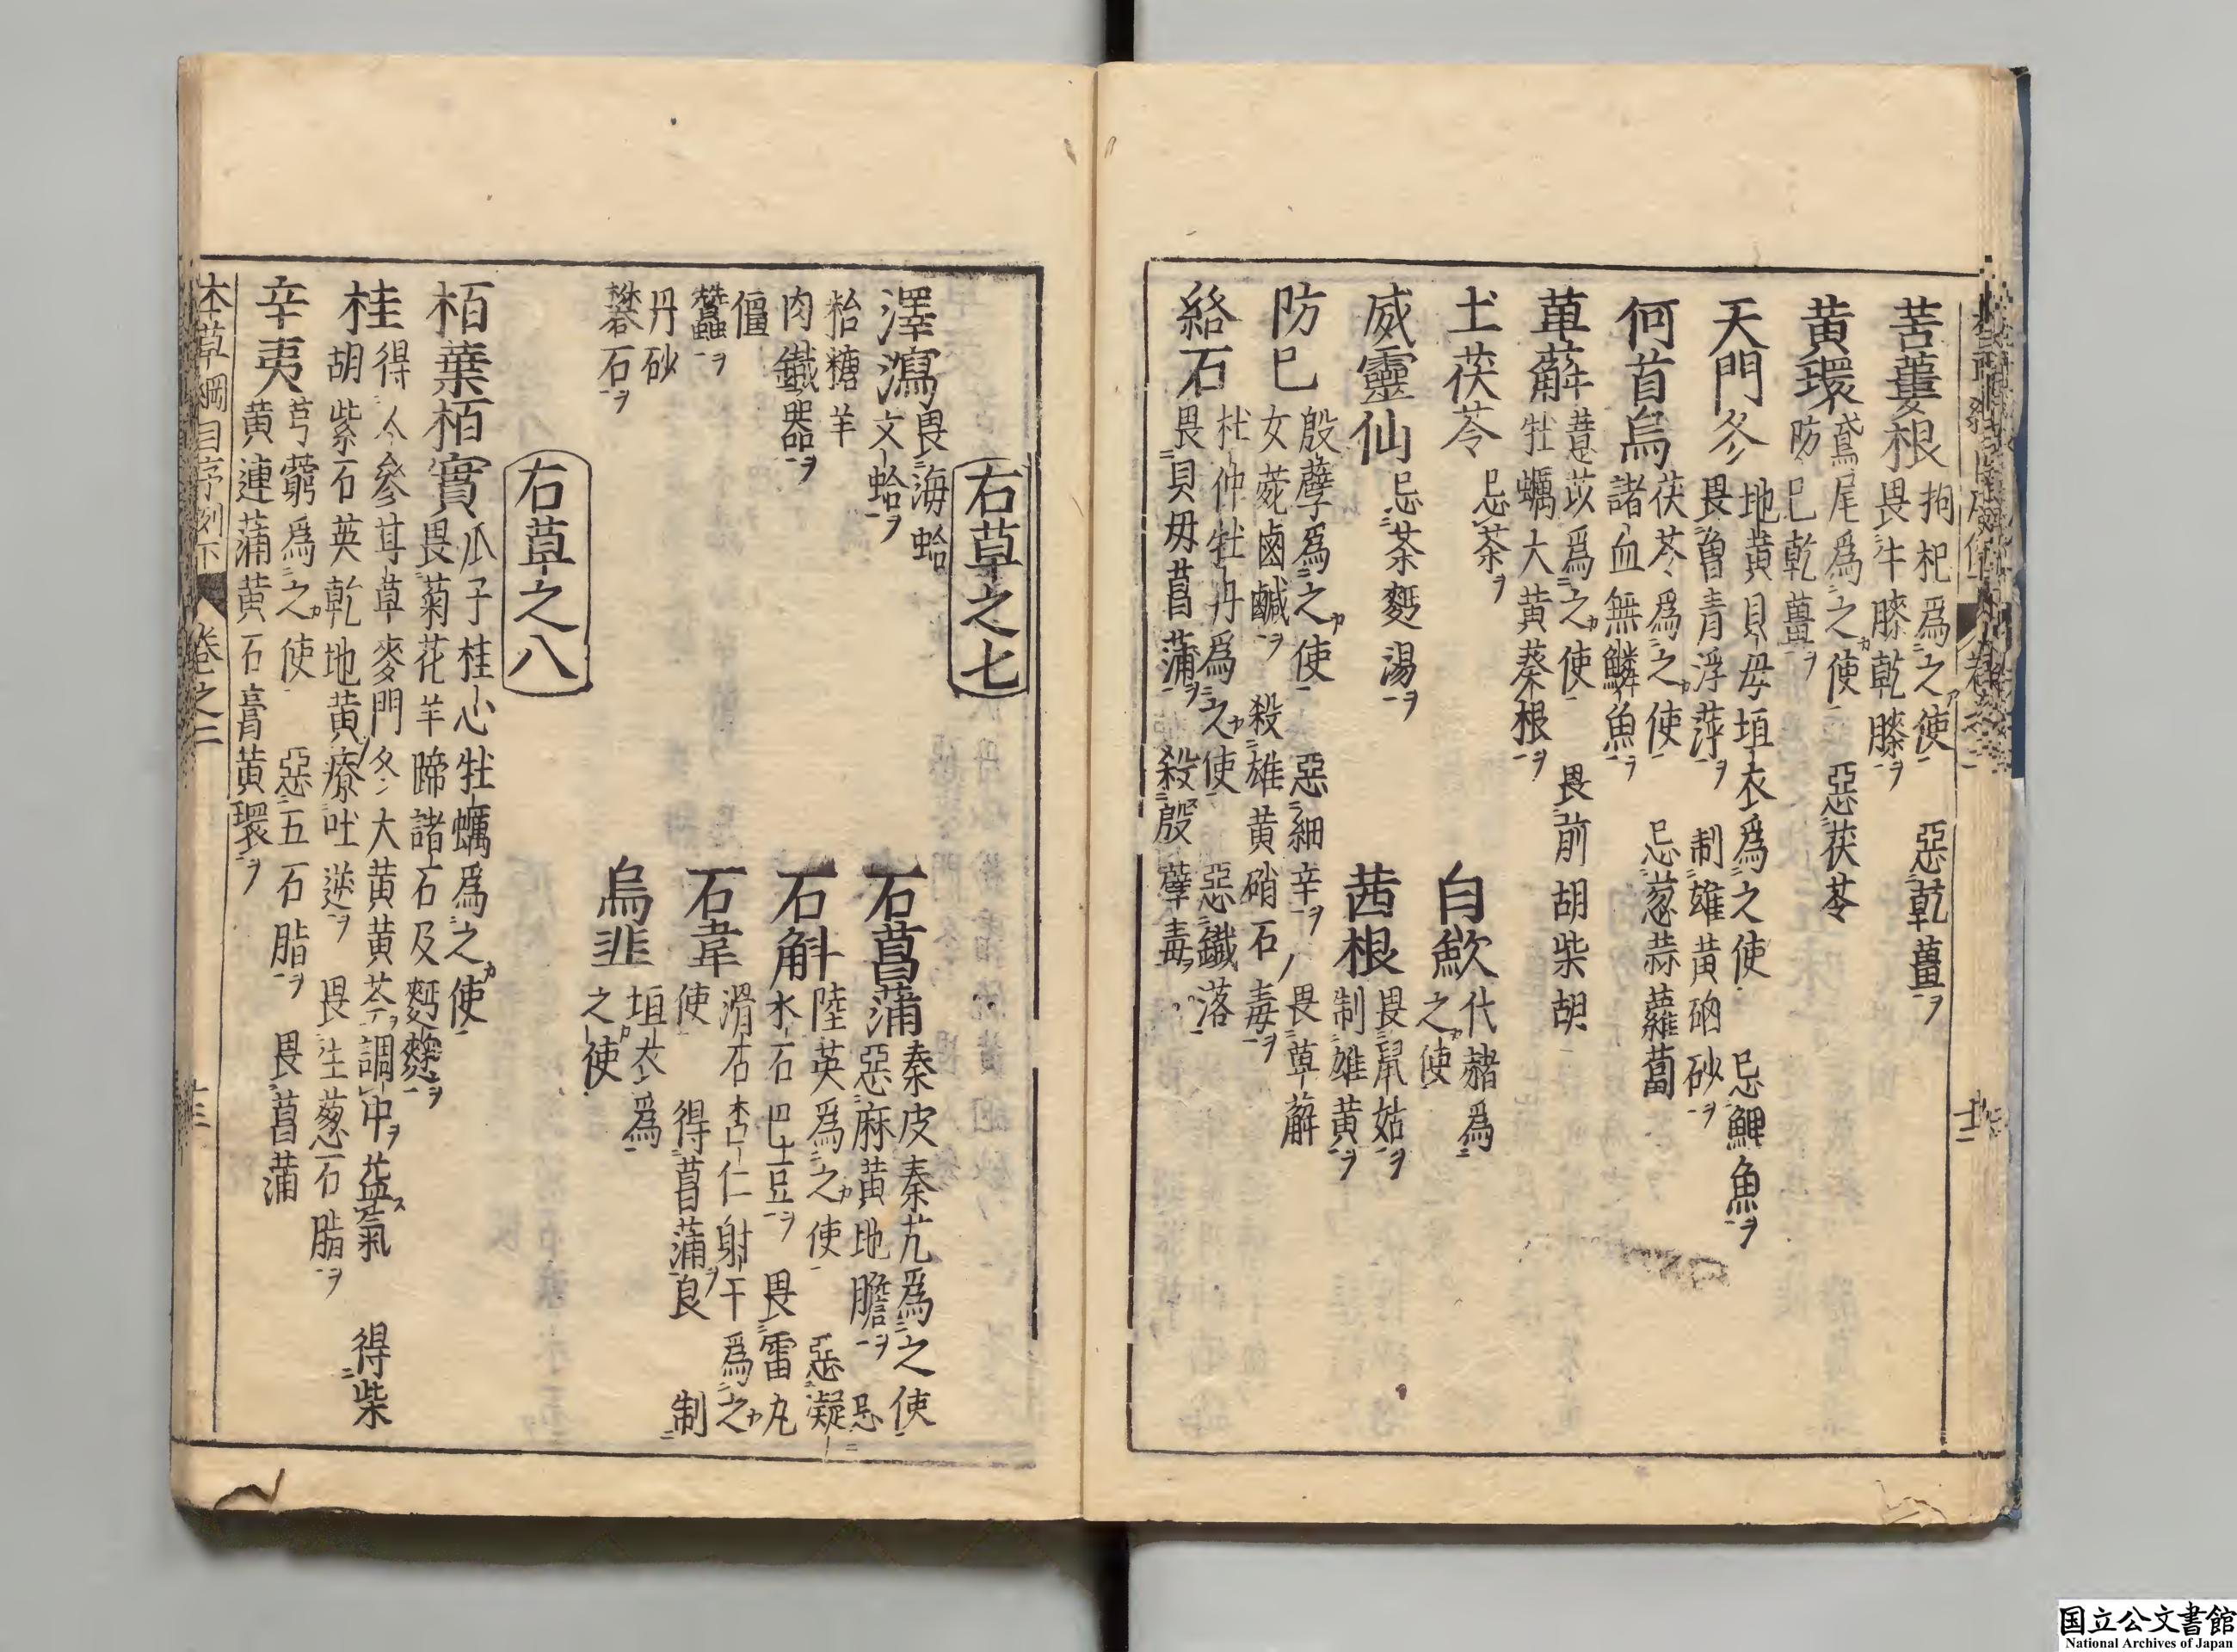 苦蔞根 拘杞爲之使 惡乾薑
畏牛膝乾膝
黄環 鳶尾爲之使 惡茯苓
防巳乾薑
天門冬 地黄貝毋垣衣爲之使 忌鯉魚
畏曽青浮萍 制雄黄硇砂
何首烏 茯苓爲之使 忌葱蒜蘿蔔
諸血無鱗魚
萆薢 薏苡爲之使 畏前胡柴胡
牡蠣大黄葵根
土茯苓 忌茶
白歛 代赭爲
之使
威靈仙 忌茶麪湯
茜根 畏鼠姑
制雄黄
防巳 殷孽爲之使 惡細辛 畏萆薢
女菀鹵鹹 殺雄黄硝石毒
絡石 杜仲牡丹爲之使 惡鐵落
畏貝毋菖蒲 殺殷孽毒
右草之七
澤瀉 畏海蛤
文蛤
石菖蒲 秦皮秦艽爲之使
惡麻黄地膽 忌
粭糖羊
肉鐵器
石斛 陸英爲之使 惡凝
水石巴豆 畏雷丸
僵
蠶
石韋 滑石杏仁射干爲之
使 得菖蒲良 制
丹砂
礬石
烏韭 垣衣爲
之使
右草之八
栢葉栢實 瓜子桂心牡蠣爲之使
畏菊花羊蹄諸石及麪麴
桂 得人參甘草麥門冬大黄黄芩調中益氣 得柴
胡紫石英乾地黄療吐逆 畏生葱石脂
辛夷 芎藭爲之使 惡五石脂 畏菖蒲
黄連蒲黄石膏黄環
本草綱目序例下 卷之二
国立公文書館
National Archives of Japan